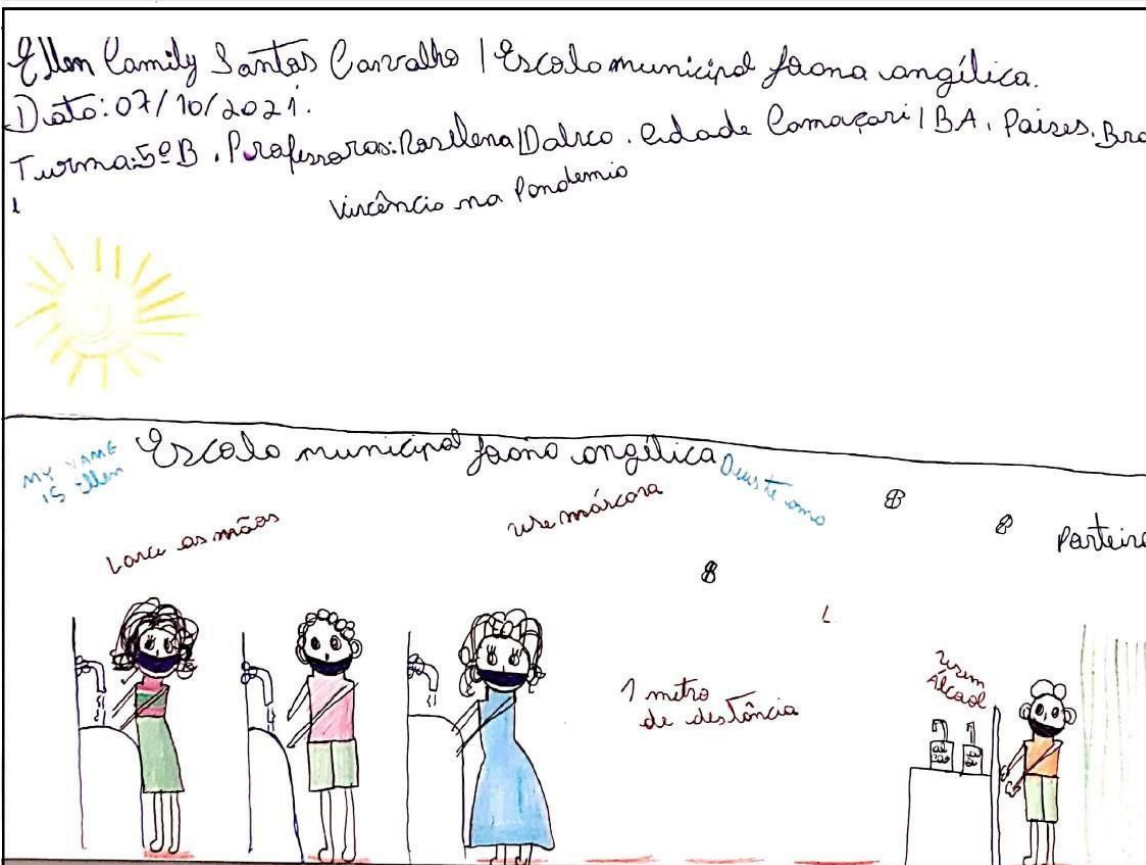 Ellen Camily Santos Carvalho | Escola municipal Joana angílica.
Data: 07/10/2021.
Turma: 5º B. Professoras: Rosilena | Dalico. Cidade Camaçari | BA. Paises. Bra
l
Vivência na Pandemia
Escola municipal Joana angílica
MY NAME
IS Ellen
Deus te amo
Lave as mãos
use máscara
Porteiro
1 metro
de destância
usem
Álcool